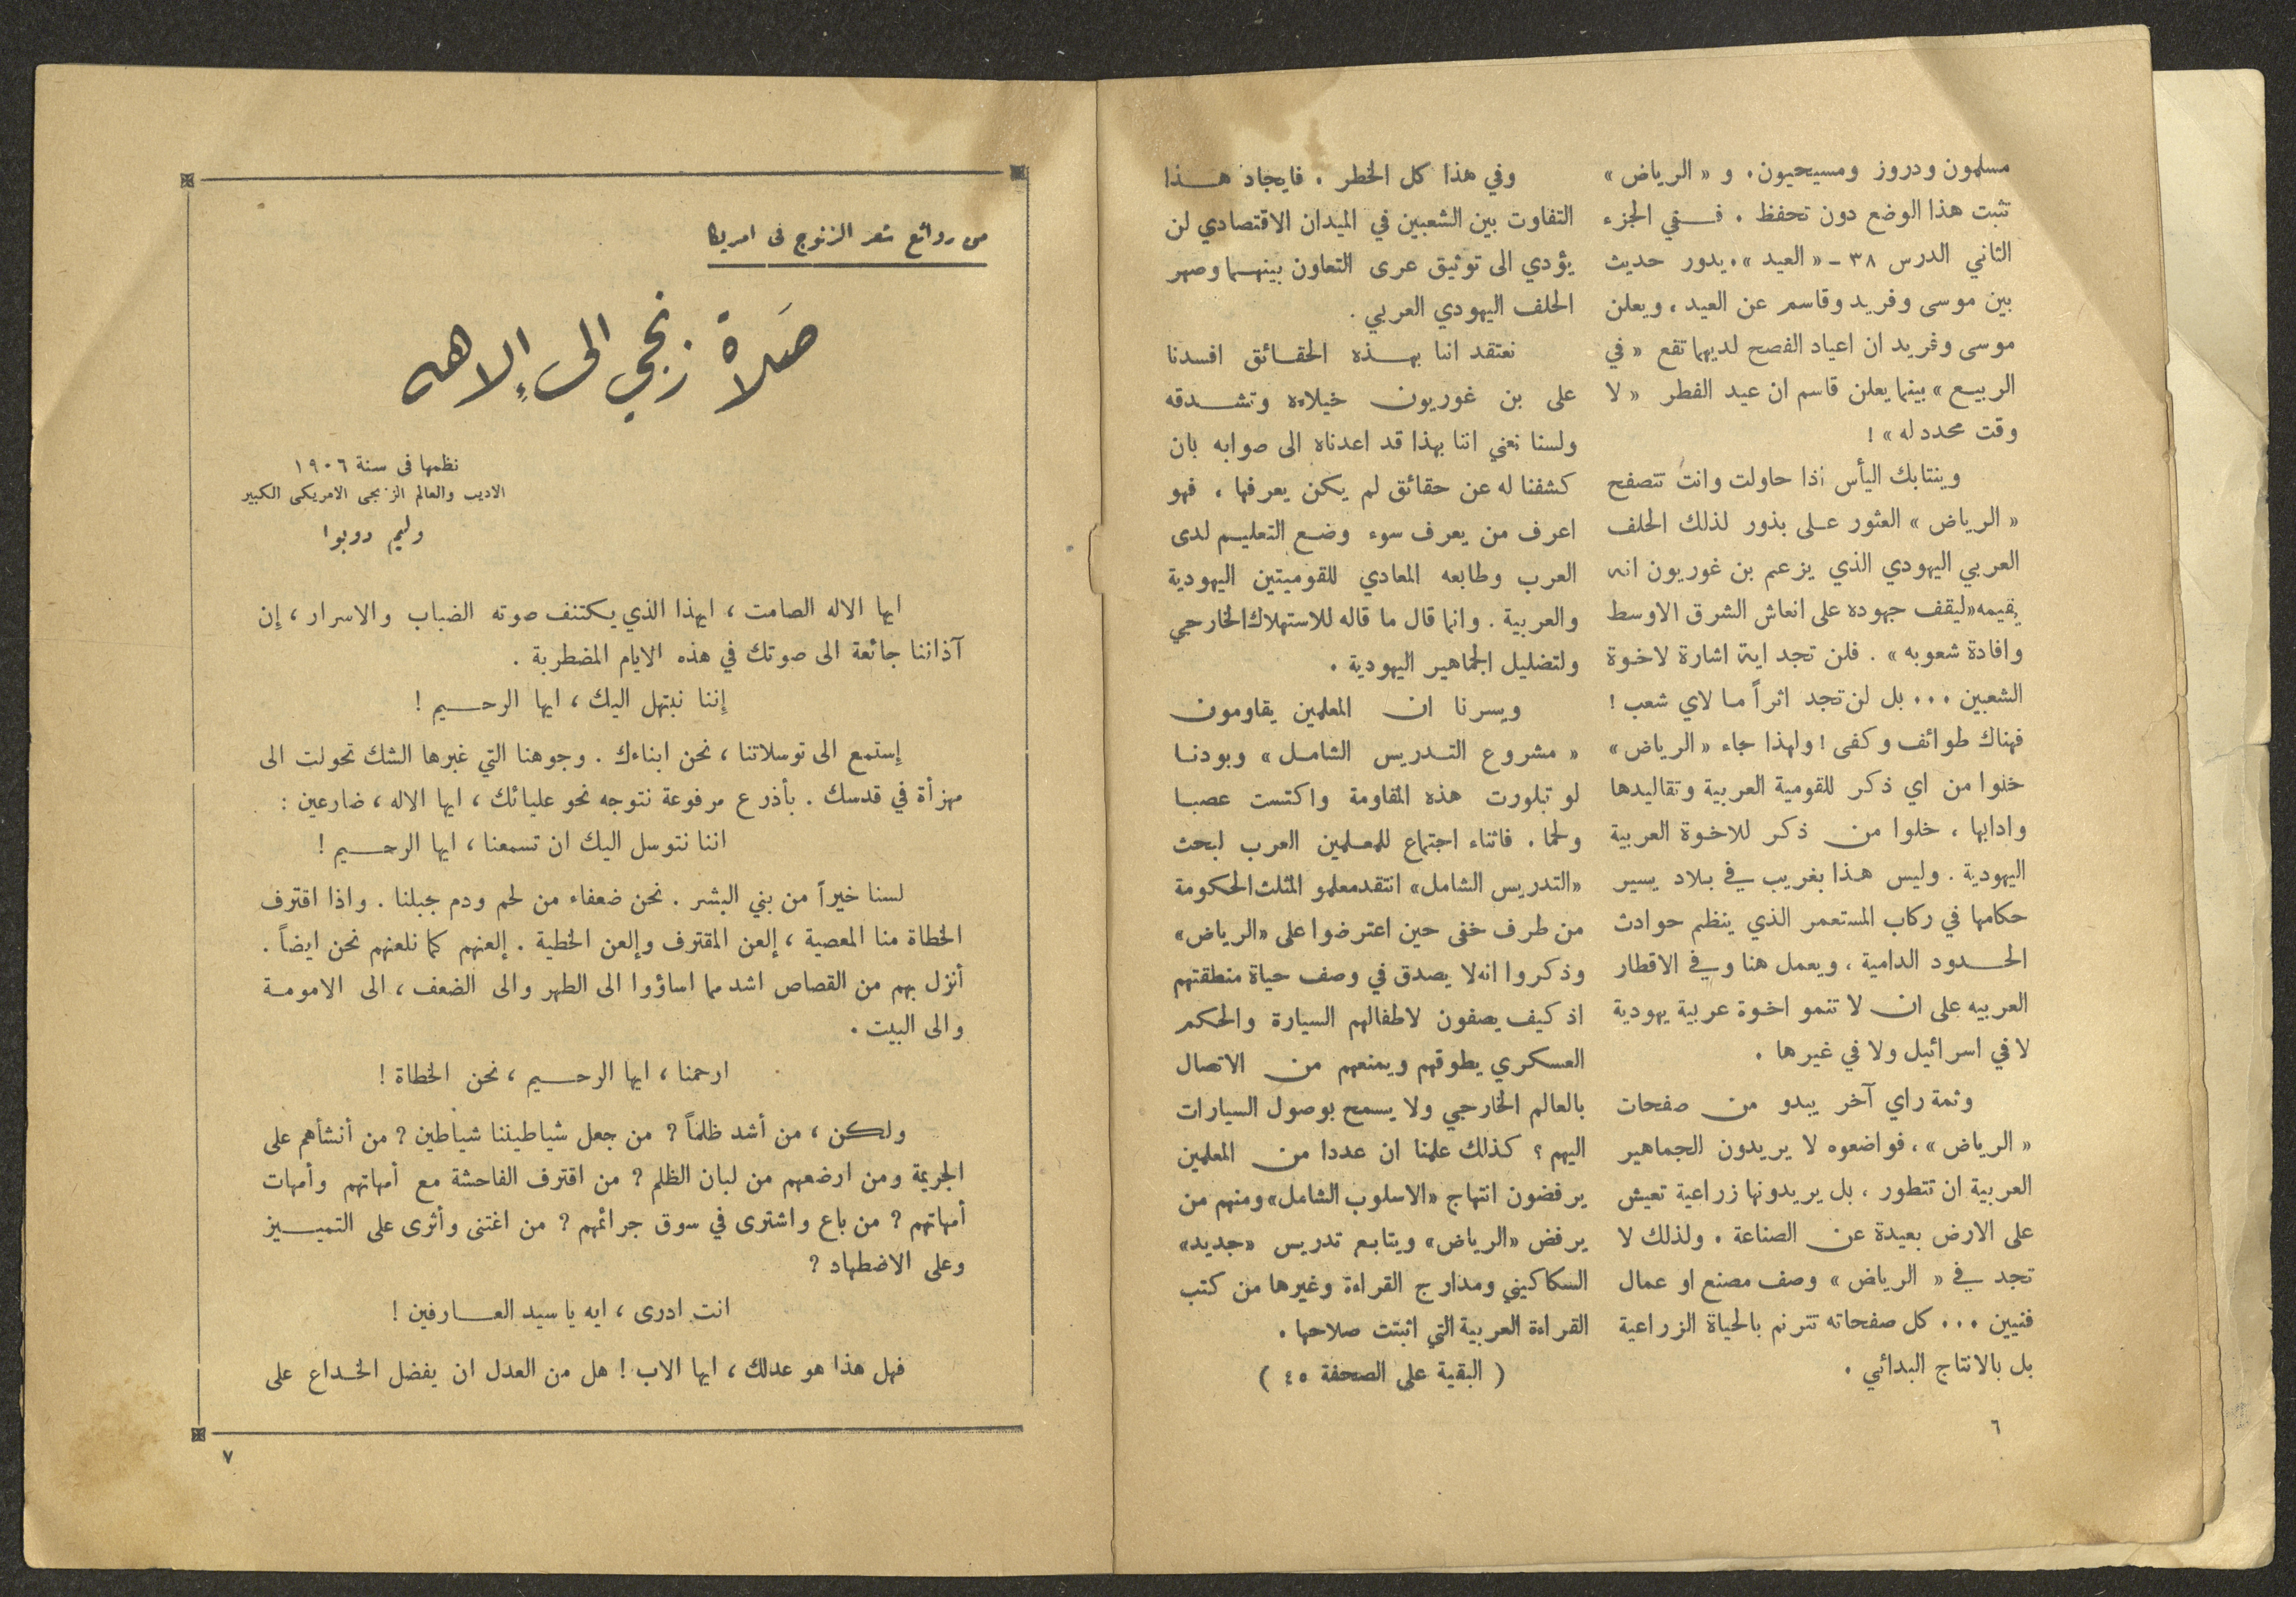 مسلمون ودروز ومسيحيون. و « الرياض »
تثبت هذا الوضع دون تحفظ. فــفي الجزء
الثاني الدرس ٣٨ – « العيد ». يدور حديث
بين موسى وفريد وقاسم عن العيد، ويعلن
موسى وفريد ان اعياد الفصح لديهما تقع « في
الربيع » بينما يعلن قاسم ان عيد الفطر « لا
وقت محدد له » !
وينتابك اليأس اذا حاولت وانت تتصفح
« الرياض » العثور على بذور لذلك الحلف
العربي اليهودي الذي يزعم بن غوريون انه
يقيمه «ليقف جهوده على انعاش الشرق الاوسط
وافادة شعوبه » . فلن تجد اية اشارة لاخوة
الشعبين ... بل لن تجد اثراً ما لاي شعب !
فهناك طوائف وكفى ! ولهذا جاء « الرياض »
خلوا من اي ذكر للقومية العربية وتقاليدها
وادابها ، خلوا من ذكر للاخوة العربية
اليهودية . وليس هذا بغريب في بلاد يسير
حكامها في ركاب المستعمر الذي ينظم حوادث
الحــدود الدامية ، ويعمل هنا وفي الاقطار
العربيه على ان لا تنمو اخوة عربية يهودية
لا في اسرائيل ولا في غيرها .
وثمة راي آخر يبدو من صفحات
« الرياض » ، فواضعوه لا يريدون الجماهير
العربية ان تتطور ، بل يريدونها زراعية تعيش
على الارض بعيدة عن الصناعة . ولذلك لا
تجد في « الرياض » وصف مصنع او عمال
فنيين ... كل صفحاته تترنم بالحياة الزراعية
بل بالانتاج البدائي .
٦
وفي هذا كل الخطر . فايجاد هــذا
التفاوت بين الشعبين في الميدان الاقتصادي لن
يؤدي الى توثيق عرى التعاون بينهــما وصهر
الحلف اليهودي العربي .
نعتقد اننا بهــذه الحقــائق افسدنا
على بن غوريون خيلاءه وتشــدقه
ولسنا نعني اننا بهذا قد اعدناه الى صوابه بان
كشفنا له عن حقائق لم يكن يعرفها ، فهو
اعرف من يعرف سوء وضع التعليم لدى
العرب وطابعه المعادي للقوميتين اليهودية
والعربية . وانما قال ما قاله للاستهلاك الخارجي
ولتضليل الجماهير اليهودية .
ويسرنا ان المعلمين يقاومون
« مشروع التــدريس الشامــل » وبودنــا
لو تبلورت هذه المقاومة واكتست عصبــا
ولحما . فاثناء اجتماع للمعلمين العرب لبحث
«التدريس الشامل» انتقد معلمو المثلث الحكومة
من طرف خفى حين اعترضوا على «الرياض»
وذكروا انه لا يصدق في وصف حياة منطقتهم
اذ كيف يصفون لاطفالهم السيارة والحكم
العسكري يطوقهم ويمنعهم من الاتصال
بالعالم الخارجي ولا يسمح بوصول السيارات
اليهم ؟ كذلك علمنا ان عددا من المعلمين
يرفضون انتهاج «الاسلوب الشامل» ومنهم من
يرفض «الرياض» ويتابع تدريس «جديد»
السكاكيني ومدارج القراءة وغيرها من كتب
القراءة العربية التي اثبتت صلاحها .
( البقية على الصحفة ٤٥ )
من روائع شعر الزنوج فى امريكا
صَلاة زنجي الى إلاهه
نظمها فى سنة ١٩٠٦
الاديب والعالم الزنجى الامريكى الكبير
وليم دوبوا
ايها الاله الصامت ، ايهذا الذي يكتنف صوته الضباب والاسرار ، إن
آذاننا جائعة الى صوتك في هذه الايام المضطربة .
إننا نبتهل اليك ، ايها الرحــيم !
إستمع الى توسلاتنا ، نحن ابناءك . وجوهنا التي غبرها الشك تحولت الى
مهزأة في قدسك . بأذرع مرفوعة نتوجه نحو عليائك ، ايها الاله ، ضارعين :
اننا نتوسل اليك ان تسمعنا ، ايها الرحــيم !
لسنا خيراً من بني البشر . نحن ضعفاء من لحم ودم جبلنا . واذا اقترف
الخطاة منا المعصية ، إلعن المقترف وإلعن الخطية . إلعنهم كما نلعنهم نحن ايضاً .
أنزل بهم من القصاص اشد مما اساؤوا الى الطهر والى الضعف ، الى الامومــة
والى البيت .
ارحمنا ، ايها الرحــيم ، نحن الخطاة !
ولكن ، من أشد ظلماً ? من جعل شياطيننا شياطين ? من أنشأهم على
الجريمة ومن ارضعهم من لبان الظلم ? من اقترف الفاحشة مع أمهاتهم وأمهات
أمهاتهم ? من باع واشترى في سوق جرائمهم ? من اغتنى وأثرى على التميــيز
وعلى الاضطهاد ?
انت ادرى ، ايه يا سيد العــارفين !
فهل هذا هو عدلك ، ايها الاب ! هل من العدل ان يفضل الخــداع على
٧